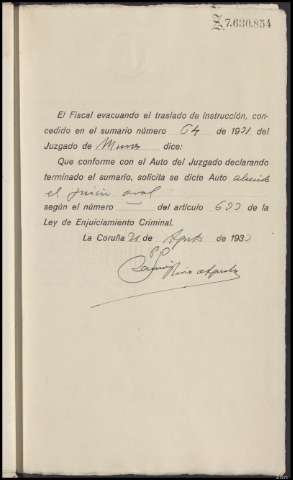 Z.7.630.854
El Fiscal evacuando el traslado de instrucción, con-
cedido en el sumario número 64 de 1931 del
Juzgado de Muros dice:
Que conforme con el Auto del Juzgado declarando
terminado el sumario, solicita se dicte Auto abriendo
el juicio oral
según el número — del artículo 633 de la
Ley de Enjuiciamiento Criminal.
La Coruña 21 de Agosto de 193